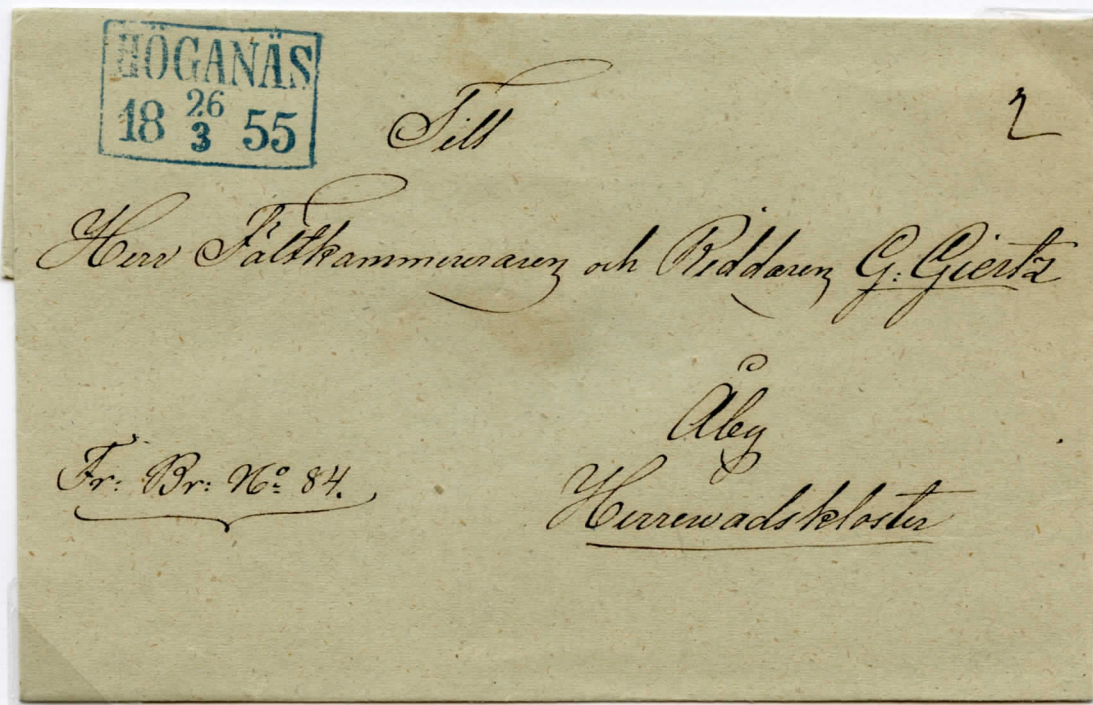 HÖGANÄS
18 26/3 55
Till
2
Herr Fältkammereraren och Riddaren G: Giertz
Åby
Fr: Br: No: 84.
Herrewadskloster